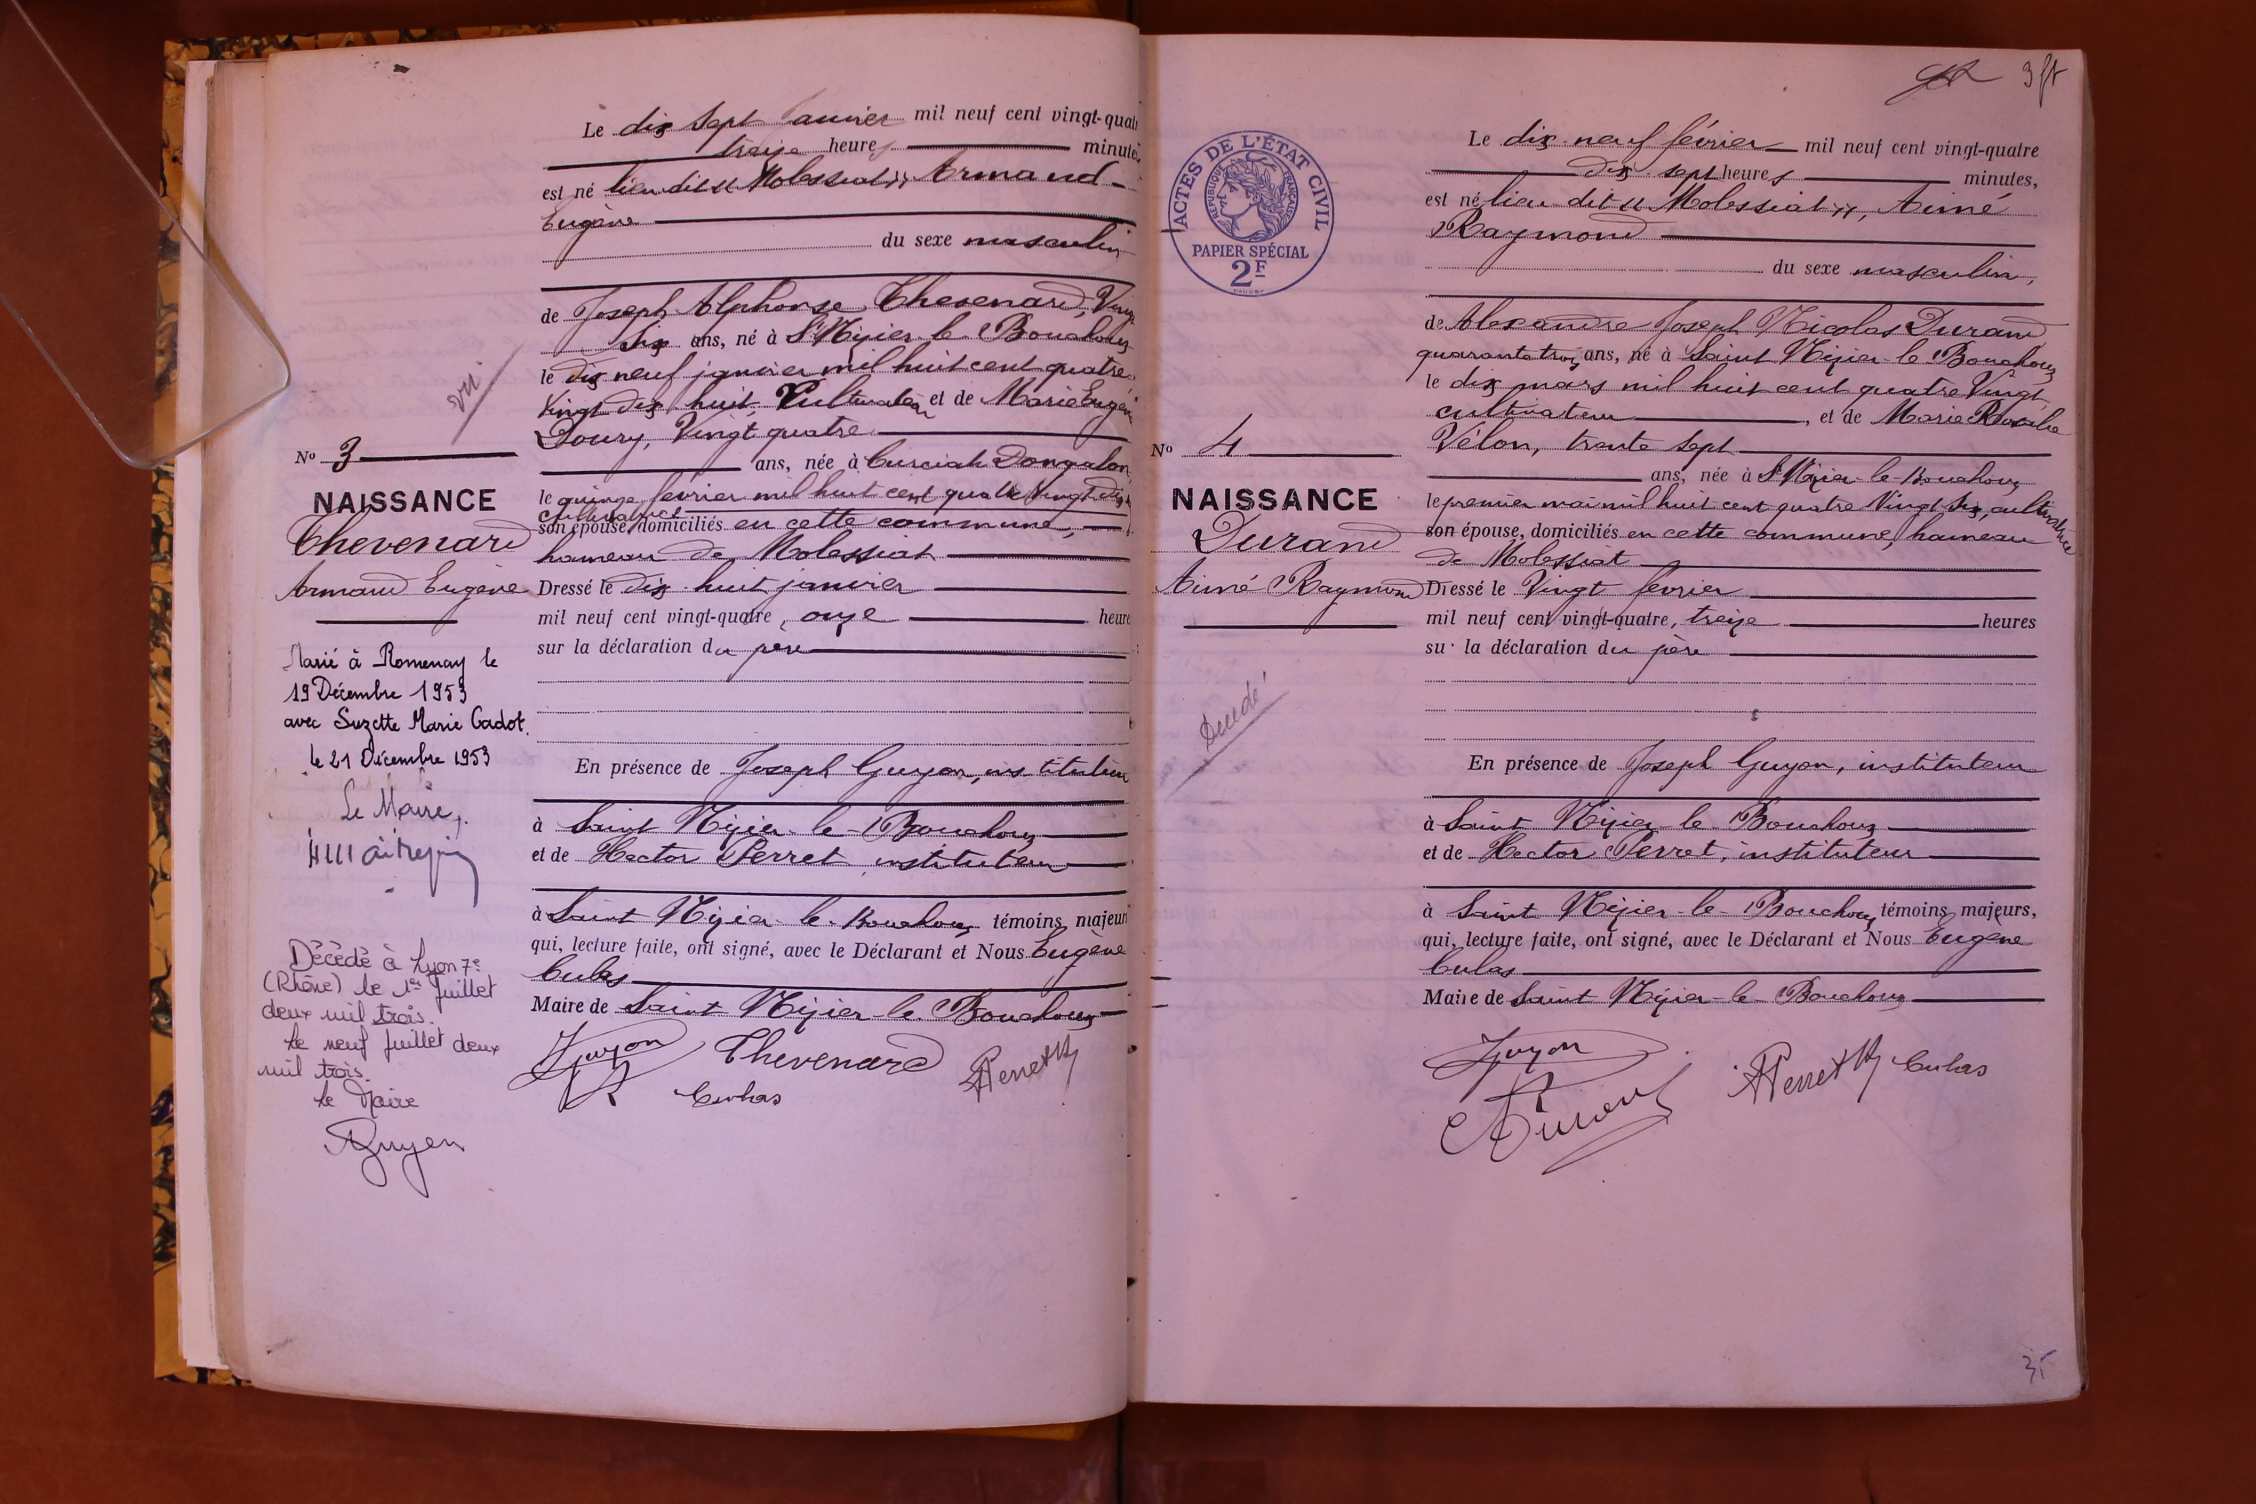 Le dix sept janvier mil neuf cent vingt-quatr
treize heures minutes
est né lieu dit "Molessiat", Armand
Eugène
du sexe masculin
de Joseph Alphonse Thevenard, Vingt
Six ans, né à St Nizier-le-Bouchoux
le dix neuf janvier mil huit cent quatre
vingt dix huit, Cultivateur et de Marie Eugénie
Doury, Vingt quatre
ans, née à Curciat Dongalon
le quinze février mil huit cent quatre vingt dix
cultivatrice
son épouse, domiciliés en cette commune,
hameau de Molessiat
Dressé le dix huit janvier
mil neuf cent vingt-quatre, onze heure
sur la déclaration du père
En présence de Joseph Guyon, instituteur
à Saint Nizier-le-Bouchoux
et de Hector Perret, instituteur
à Saint Nizier-le-Bouchoux témoins majeur
qui, lecture faite, ont signé, avec le Déclarant et Nous Eugène
Culas
Maire de Saint Nizier-le-Bouchoux
Guyon Thevenard Perret
Culas
vu
No 3
NAISSANCE
Thevenard
Armand Eugène
Marié à Romenay le
19 Décembre 1953
avec Suzette Marie Cadot.
le 21 Décembre 1953
Le Maire,
Décédé à Lyon 7e
(Rhône) le 1er juillet
deux mil trois.
Le neuf juillet deux
mil trois.
Le Maire
3 ft
ACTES DE L'ÉTAT CIVIL
RÉPUBLIQUE FRANÇAISE
PAPIER SPÉCIAL
2F
No 4
NAISSANCE
Durand
Aimé Raymond
Décédé
Le dix neuf février mil neuf cent vingt-quatre
dix sept heures minutes,
est né lieu dit "Molessiat", Aimé
Raymond
du sexe masculin,
de Alexandre Joseph Nicolas Durand
quarante trois ans, né à Saint Nizier-le-Bouchoux
le dix mars mil huit cent quatre Vingt
cultivateur, et de Marie Rosalie
Vélon, trente sept
ans, née à St Nizier-le-Bouchoux
le premier mai mil huit cent quatre Vingt Six, cultivatrice
son épouse, domiciliés en cette commune, hameau
de Molessiat
Dressé le Vingt février
mil neuf cent vingt-quatre, treize heures
su la déclaration du père
En présence de Joseph Guyon, instituteur
à Saint Nizier-le-Bouchoux
et de Hector Perret, instituteur
à Saint Nizier-le-Bouchoux témoins majeurs,
qui, lecture faite, ont signé, avec le Déclarant et Nous Eugène
Culas
Maire de Saint Nizier-le-Bouchoux
Guyon Perret Culas
Durand
35